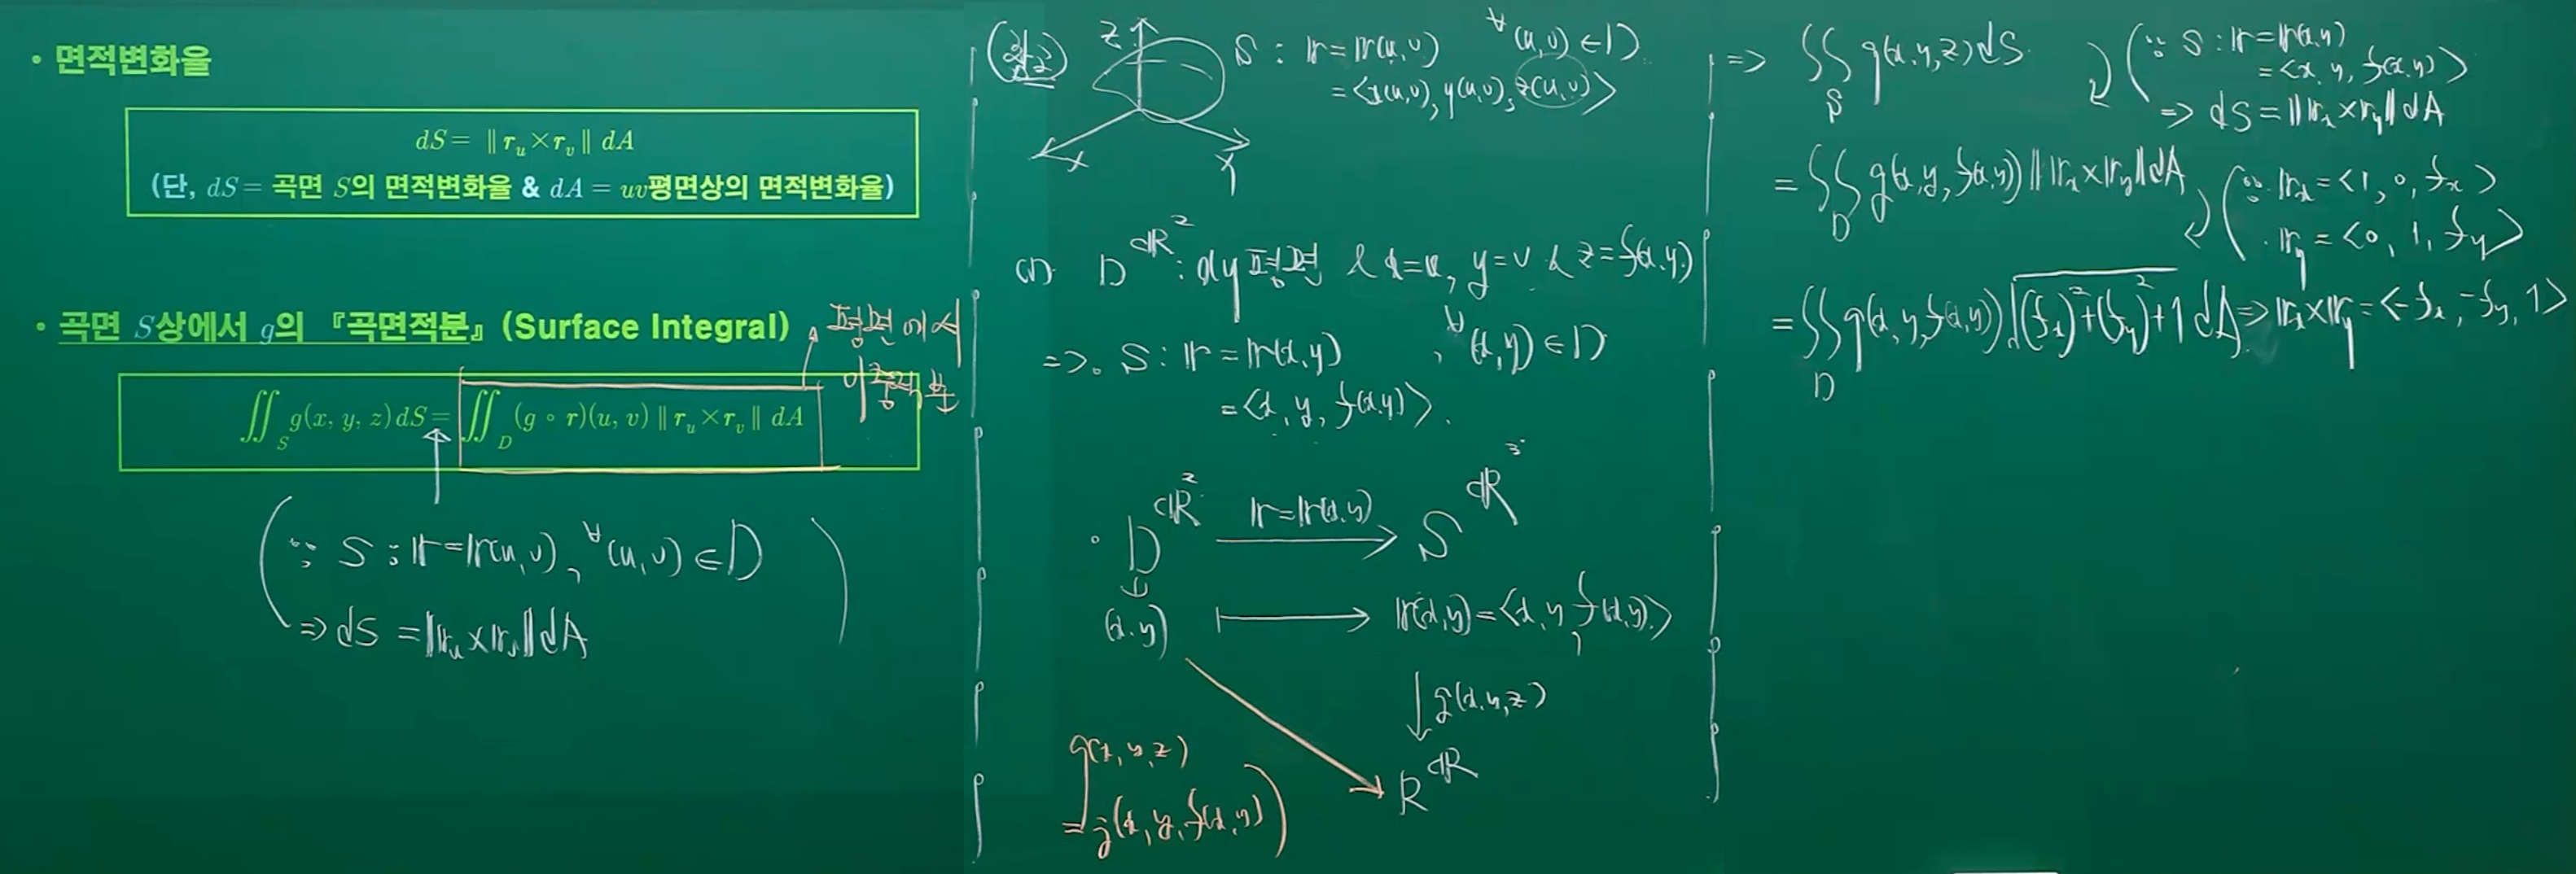 • 면적변화율
dS = ∥ r_u × r_v ∥ dA
(단, dS = 곡면 S의 면적변화율 & dA = uv평면상의 면적변화율)
• 곡면 S상에서 g의 『곡면적분』(Surface Integral)
평면에서
이중적분
∬_S g(x, y, z) dS = ∬_D (g ∘ r)(u, v) ∥ r_u × r_v ∥ dA
(∵ S : r = r(u, v), ∀(u, v) ∈ D
⇒ dS = ∥r_u × r_v∥ dA)
Z
X
Y
S : r = r(u, v) ∀(u, v) ∈ D
= <x(u,v), y(u,v), z(u,v)>
(1) D^{ℝ²} : xy평면 & x = u, y = v & z = f(x,y)
⇒ S : r = r(x,y), ∀(x,y) ∈ D
= <x, y, f(x,y)>
• D^{ℝ²} r = r(x,y) → S^{ℝ³}
(x, y) ↦ r(x,y) = <x, y, f(x,y)>
↓ g(x,y,z)
R^{ℝ}
g(x, y, z)
= g(x, y, f(x,y))
⇒ ∬_S g(x,y,z) dS
(∵ S : r = r(x,y)
= <x, y, f(x,y)>
⇒ dS = ∥r_x × r_y∥ dA
= ∬_D g(x, y, f(x,y)) ∥r_x × r_y∥ dA
(∵ r_x = <1, 0, f_x>
r_y = <0, 1, f_y>
= ∬_D g(x, y, f(x,y)) √((f_x)² + (f_y)² + 1) dA
⇒ r_x × r_y = <-f_x, -f_y, 1>